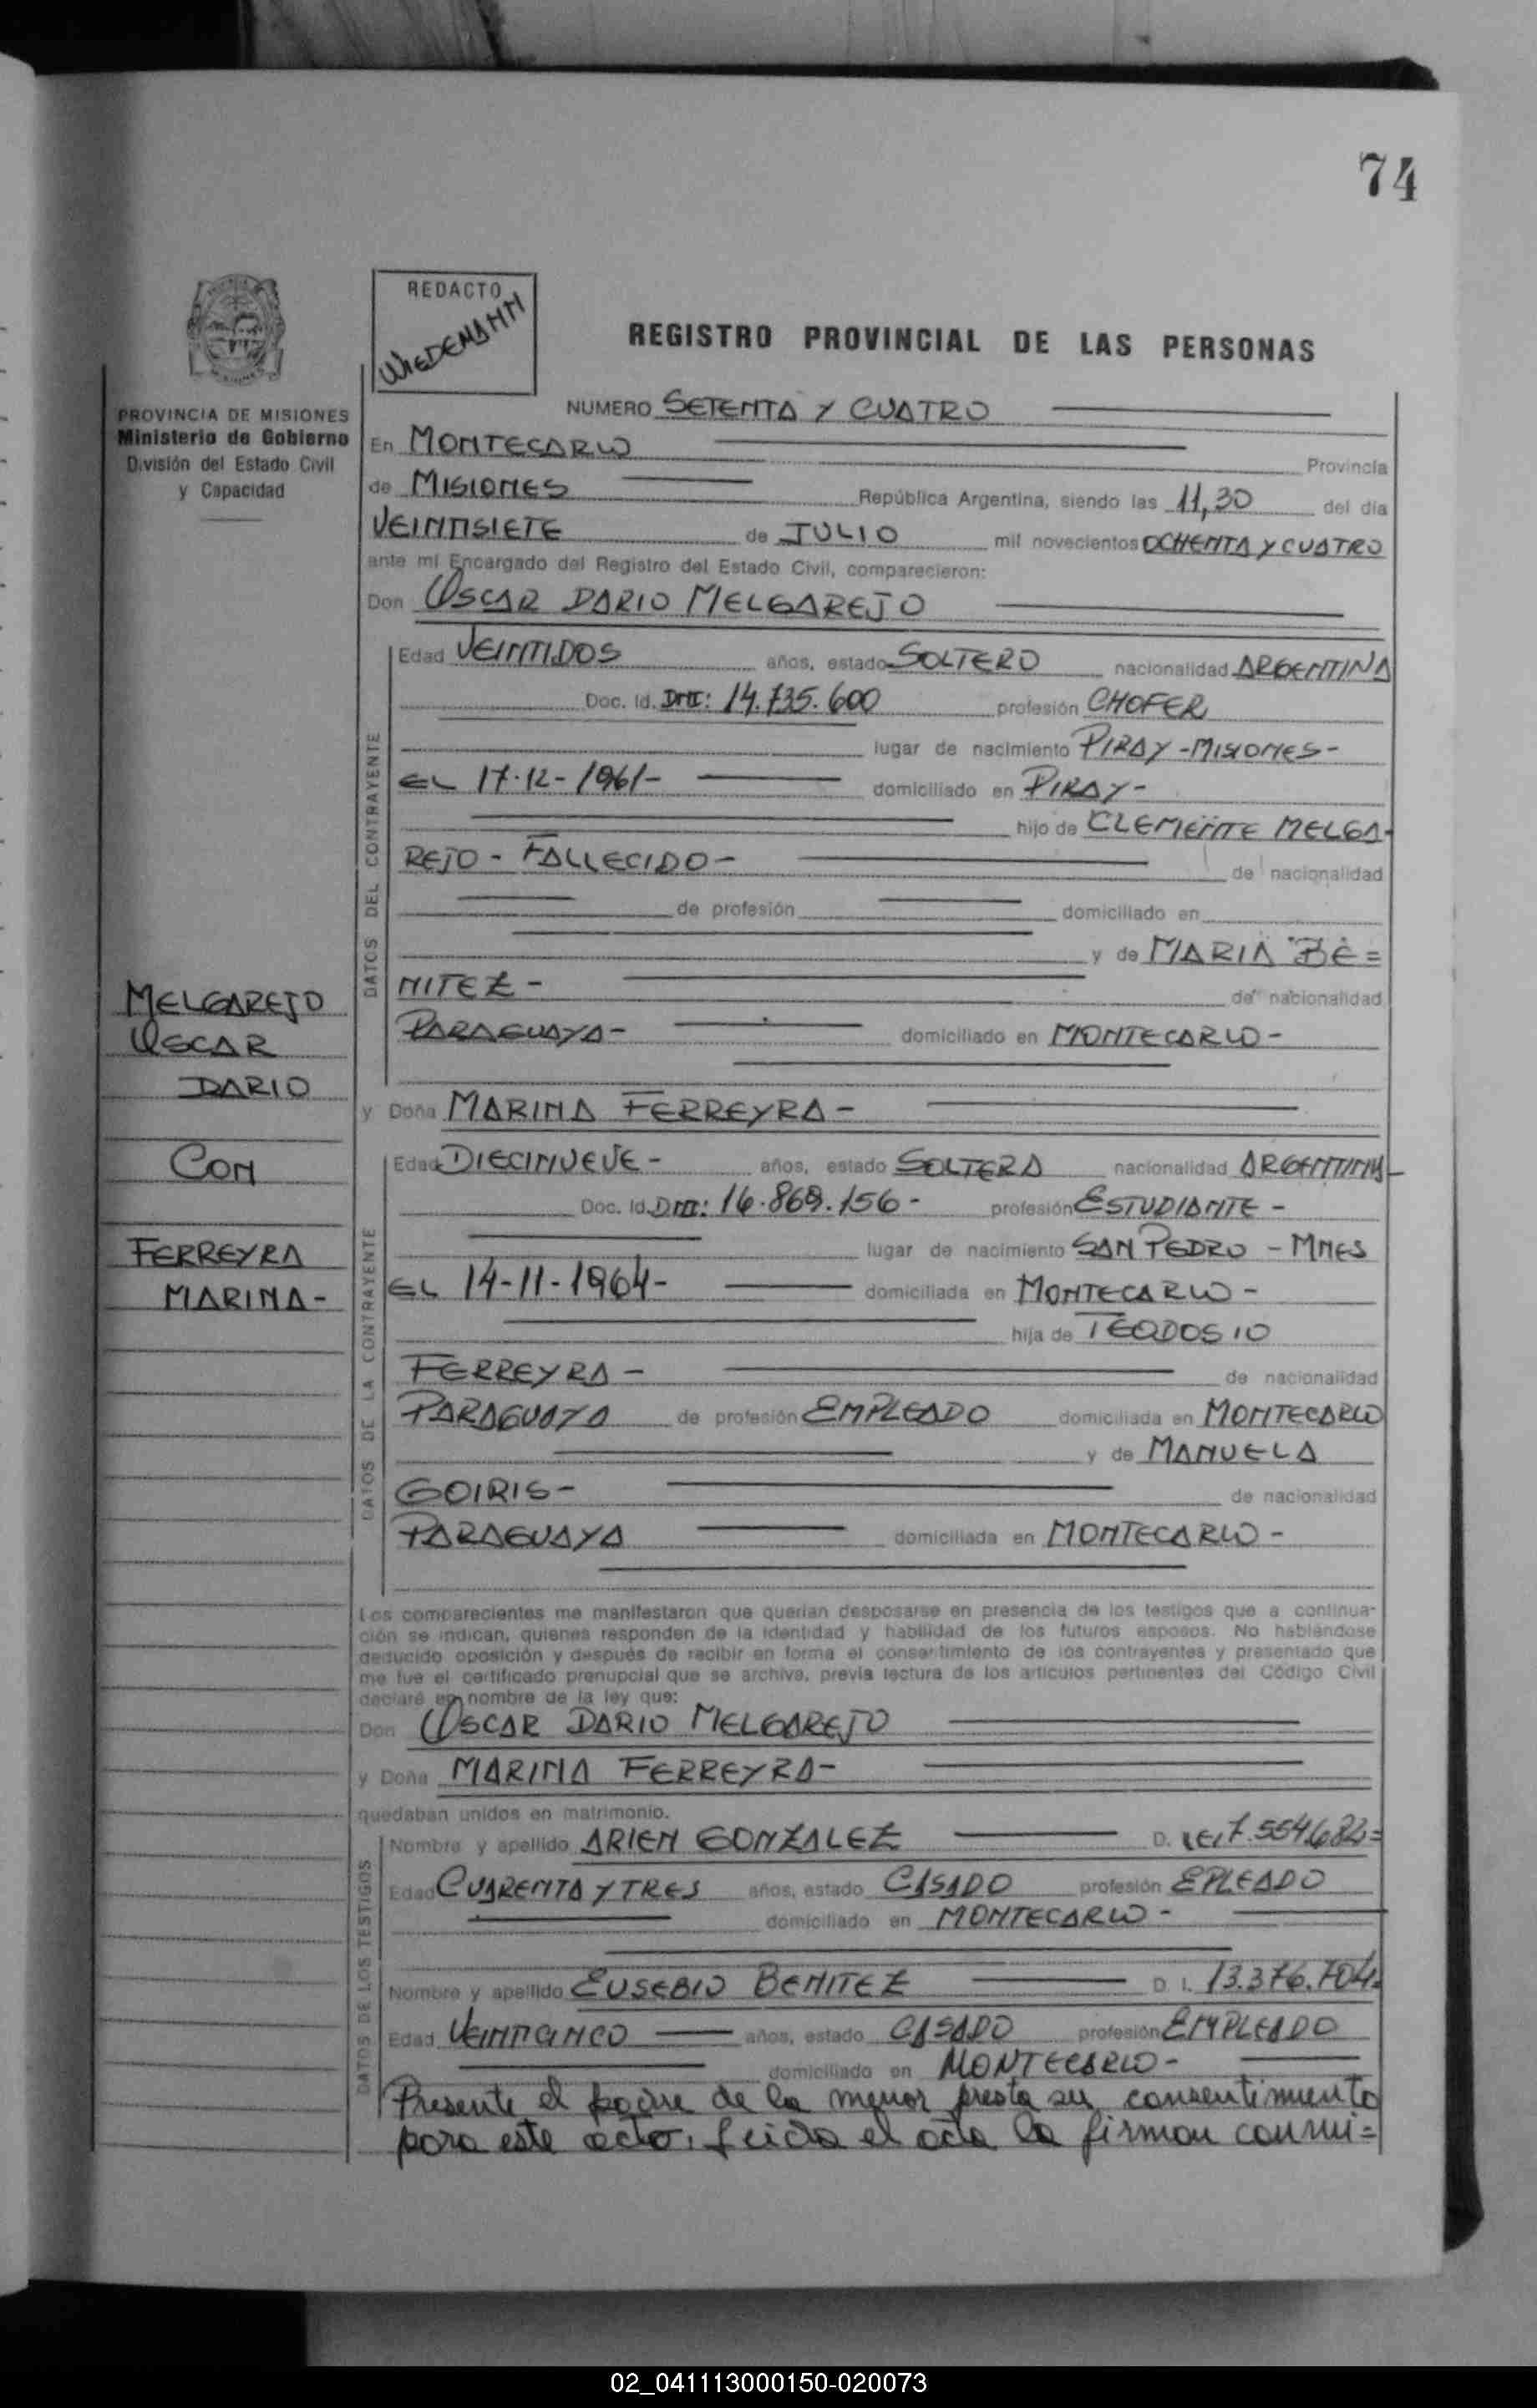 74
REDACTO
WIEDEMANN
REGISTRO PROVINCIAL DE LAS PERSONAS
PROVINCIA DE MISIONES
Ministerio de Gobierno
División del Estado Civil
y Capacidad
NUMERO SETENTA Y CUATRO
En MONTECARLO Provincia
de MISIONES República Argentina, siendo las 11,30 del día
VEINTISIETE de JULIO mil novecientos OCHENTA Y CUATRO
ante mi Encargado del Registro del Estado Civil, comparecieron:
Don OSCAR DARIO MELGAREJO
DATOS DEL CONTRAYENTE
Edad VEINTIDOS años, estado SOLTERO nacionalidad ARGENTINA
Doc. Id. DNI: 14.735.600 profesión CHOFER
lugar de nacimiento PIRAY - MISIONES -
EL 17-12-1961- domiciliado en PIRAY -
hijo de CLEMENTE MELGA-
REJO - FALLECIDO - de nacionalidad
de profesión domiciliado en
y de MARIA BE=
NITEZ - de nacionalidad
PARAGUAYA - domiciliado en MONTECARLO -
y Doña MARINA FERREYRA -
DATOS DE LA CONTRAYENTE
Edad DIECINUEVE - años, estado SOLTERA nacionalidad ARGENTINA
Doc. Id. DNI: 16.869.156 - profesión ESTUDIANTE -
lugar de nacimiento SAN PEDRO - MNES
EL 14-11-1964- domiciliada en MONTECARLO -
hija de TEODOSIO
FERREYRA - de nacionalidad
PARAGUAYA de profesión EMPLEADO domiciliada en MONTECARLO
y de MANUELA
GOIRIS - de nacionalidad
PARAGUAYA domiciliada en MONTECARLO -
MELGAREJO
OSCAR
DARIO
CON
FERREYRA
MARINA -
Los comparecientes me manifestaron que querían desposarse en presencia de los testigos que a continua-
ción se indican, quienes responden de la identidad y habilidad de los futuros esposos. No habiéndose
deducido oposición y después de recibir en forma el consentimiento de los contrayentes y presentado que
me fue el certificado prenupcial que se archiva, previa lectura de los artículos pertinentes del Código Civil
declaré en nombre de la ley que:
Don OSCAR DARIO MELGAREJO
y Doña MARINA FERREYRA -
quedaban unidos en matrimonio.
DATOS DE LOS TESTIGOS
Nombre y apellido ARIEN GONZALEZ D. 7.554.682=
Edad CUARENTA Y TRES años, estado CASADO profesión EPLEADO
domiciliado en MONTECARLO -
Nombre y apellido EUSEBIO BENITEZ D. I. 13.376.704.
Edad VEINTICINCO años, estado CASADO profesión EMPLEADO
domiciliado en MONTECARLO -
Presente el padre de la menor presta su consentimiento
para este acto. Leida el acta la firman conmi=
02_041113000150-020073